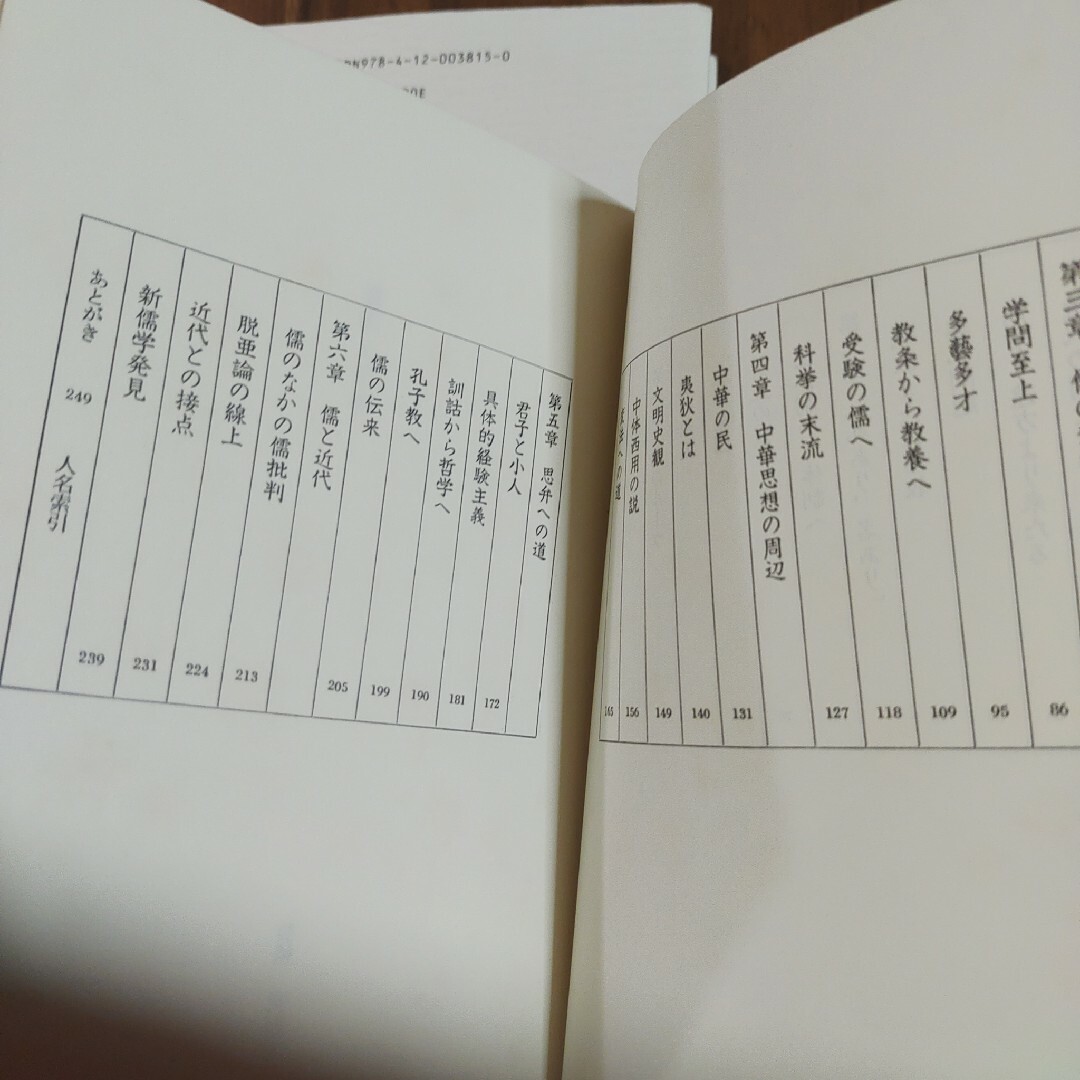 BN978-4-12-003815-0
第三章
学問至上 86
多藝多才 95
教条から教養へ 109
受験の儒へ 118
科挙の末流 127
第四章 中華思想の周辺
中華の民 131
夷狄とは 140
文明史観 149
中体西用の説 156
への道 165
第五章 思弁への道
君子と小人 172
具体的経験主義 181
訓詁から哲学へ 190
孔子教へ 199
儒の伝来 205
第六章 儒と近代
儒のなかの儒批判 213
脱亜論の線上 224
近代との接点 231
新儒学発見 239
あとがき 249 人名索引